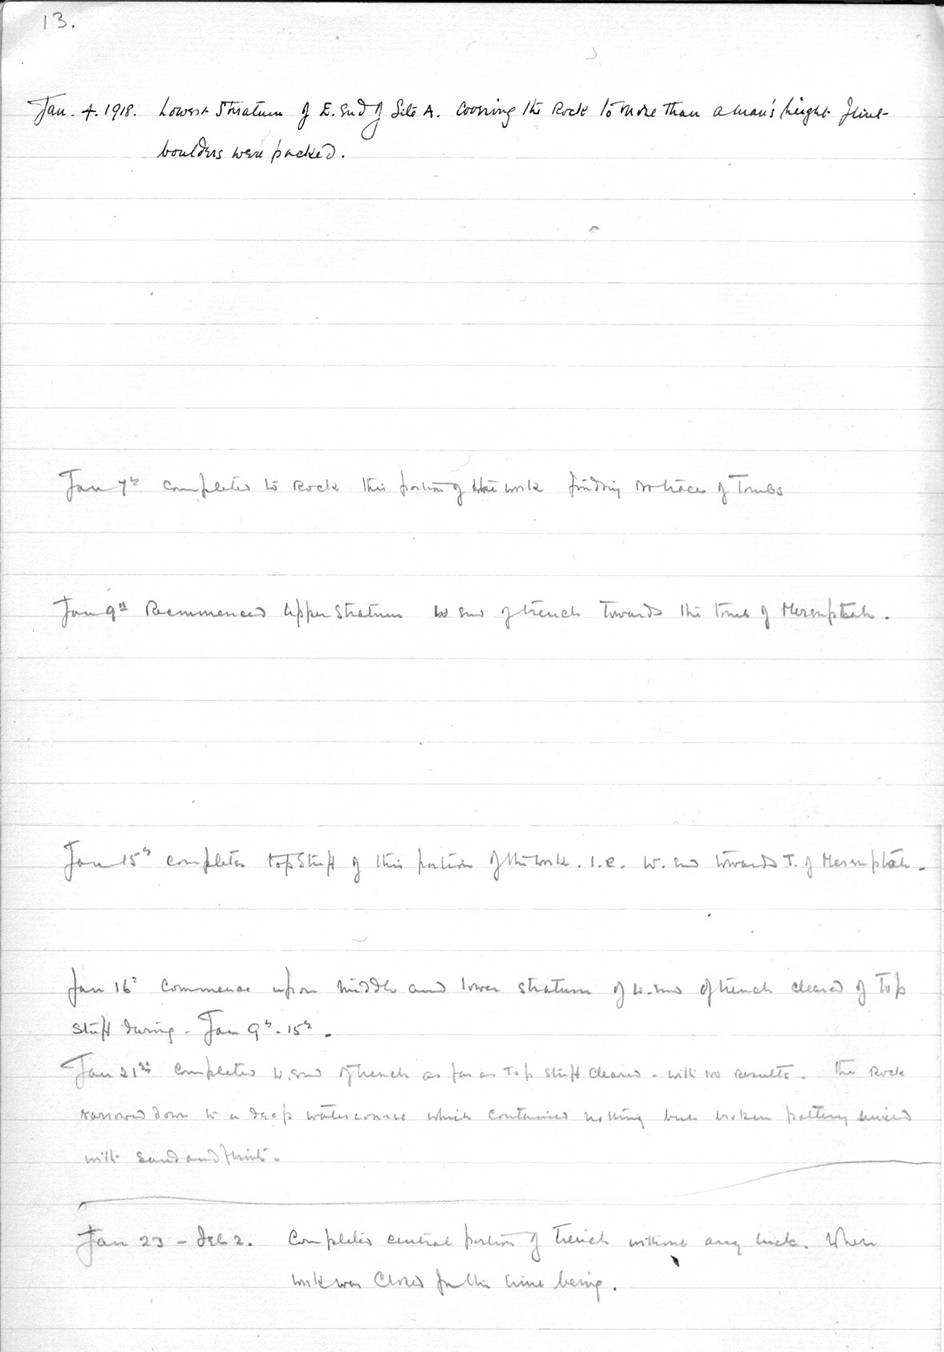 13.
Jan. 4. 1918. Lowest Stratum of E. End of Site A. Covering the Rock to more than a man's height flint-
boulders were packed.
Jan 7th Completed to Rock this portion of the work finding no traces of Tombs
Jan 9th Recommenced upper stratum W end of trench towards the tomb of Merenptah.
Jan 15th Completed top stuff of this portion of the work. I.e. W. end towards T. of Merenptah.
Jan 16th Commence upon middle and lower stratum of W. end of trench cleared of Top
stuff during. Jan 9th - 15th.
Jan 21st Completed W. end of trench as far as Top stuff cleared - with no results. The Rock
narrowed down to a deep watercourse which contained nothing but broken pottery mixed
with sand and flints.
Jan 23 - Feb 2. Completed central portion of trench without any luck. When
work was closed for the time being.